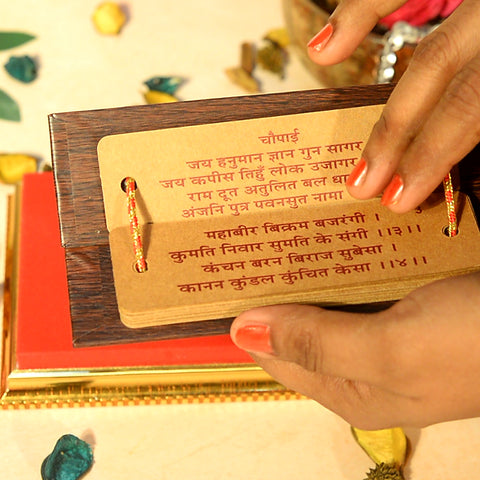 चौपाई
जय हनुमान ज्ञान गुन सागर
जय कपीस तिहुँ लोक उजागर
राम दूत अतुलित बल
अंजनि पुत्र पवनसुत नामा
महाबीर बिक्रम बजरंगी ।
कुमति निवार सुमति के संगी ।।३।।
कंचन बरन बिराज सुबेसा ।
कानन कुंडल कुंचित केसा ।।४।।